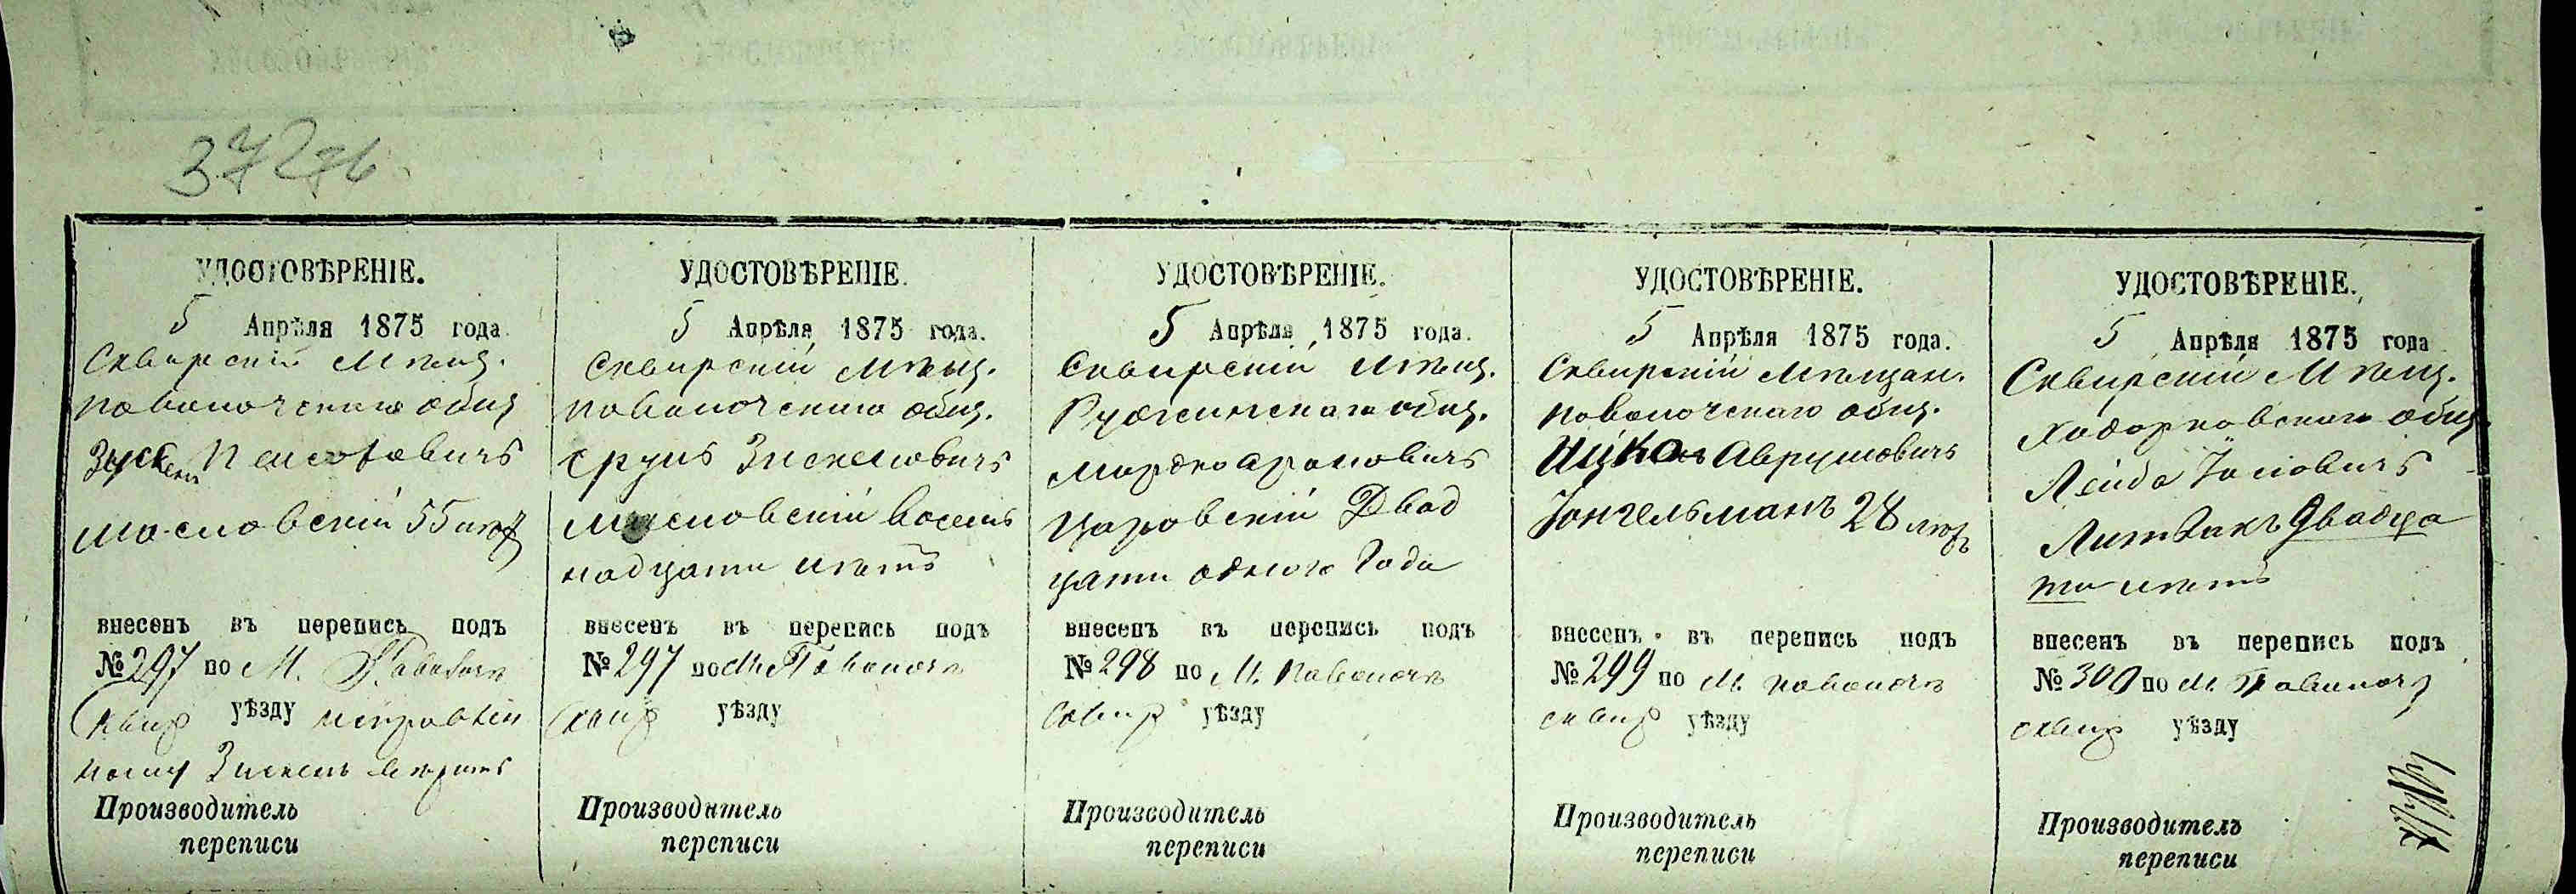 372
УДОСТОВѢРЕНІЕ.
5 Апрѣля 1875 года.
Сквирскій Мѣщ.
Паволочскаго общ
Зуск
Масловскій 55 лѣт
внесенъ въ перепись подъ
№ 297 по М. Паволочи
Сквир уѣзду
Зискель вѣрить
Производитель
переписи
УДОСТОВѢРЕНІЕ.
5 Апрѣля 1875 года.
Сквирскій Мѣщ.
Паволочскаго общ.
Срулъ Зискелювичъ
Масловскій восем
надцати лѣтъ
внесенъ въ перепись подъ
№ 297 по М. Паволочи
Сквир уѣзду
Производитель
переписи
УДОСТОВѢРЕНІЕ.
5 Апрѣля 1875 года.
Сквирскій Мѣщ.
Ружинскаго общ.
Мордко Ароновичъ
Двад
цати одного Года
внесенъ въ перепись подъ
№ 298 по М. Паволочи
Сквир уѣзду
Производитель
переписи
УДОСТОВѢРЕНІЕ.
5 Апрѣля 1875 года.
Сквирскій Мѣщан.
Паволочскаго общ.
Ицко Аврумовичъ
Юнгельманъ 28 лѣтъ
внесенъ въ перепись подъ
№ 299 по М. Паволочи
сквир уѣзду
Производитель
переписи
УДОСТОВѢРЕНІЕ.
5 Апрѣля 1875 года
Сквирскій Мѣщ.
Ходорковскаго общ.
Лейба Іосіовичъ
Литвакъ Двадца
ти лѣтъ
внесенъ въ перепись подъ
№ 300 по М. Паволочи
сквир уѣзду
Производитель
переписи